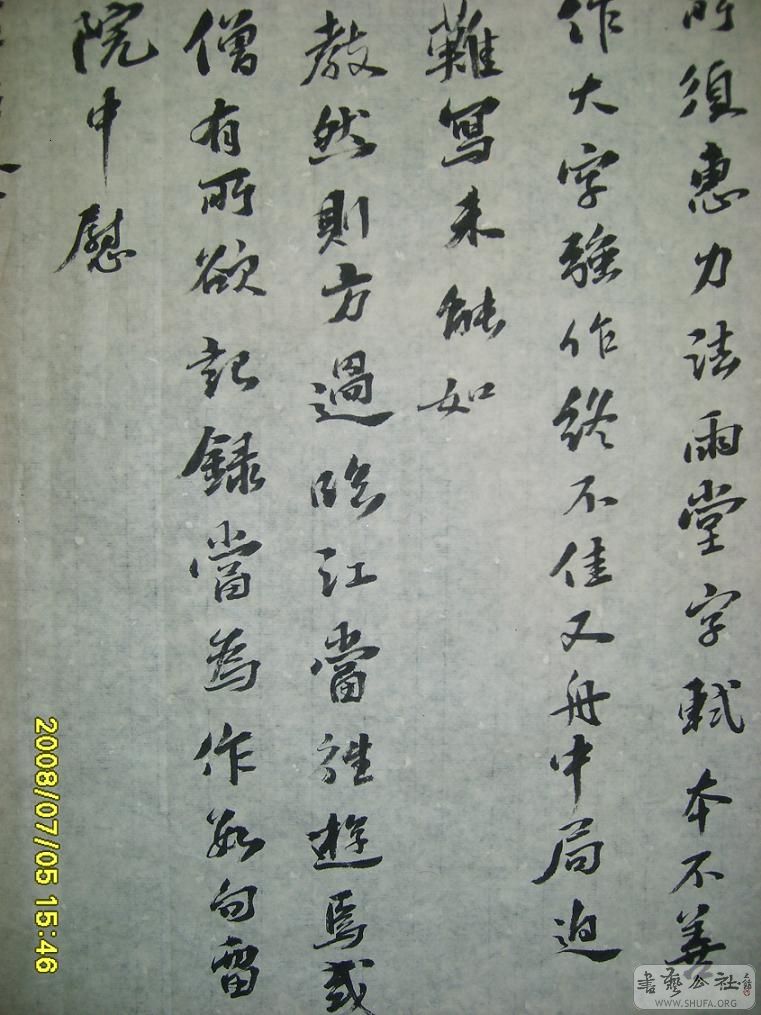 所須惠力法雨堂字軾本不善
作大字強作終不佳又舟中局迫
難寫未能如
教然則方過臨江當往遊焉或
僧有所欲記錄當為作數句留
院中慰
2008/07/05 15:46
書藝公社
WWW.SHUFA.ORG